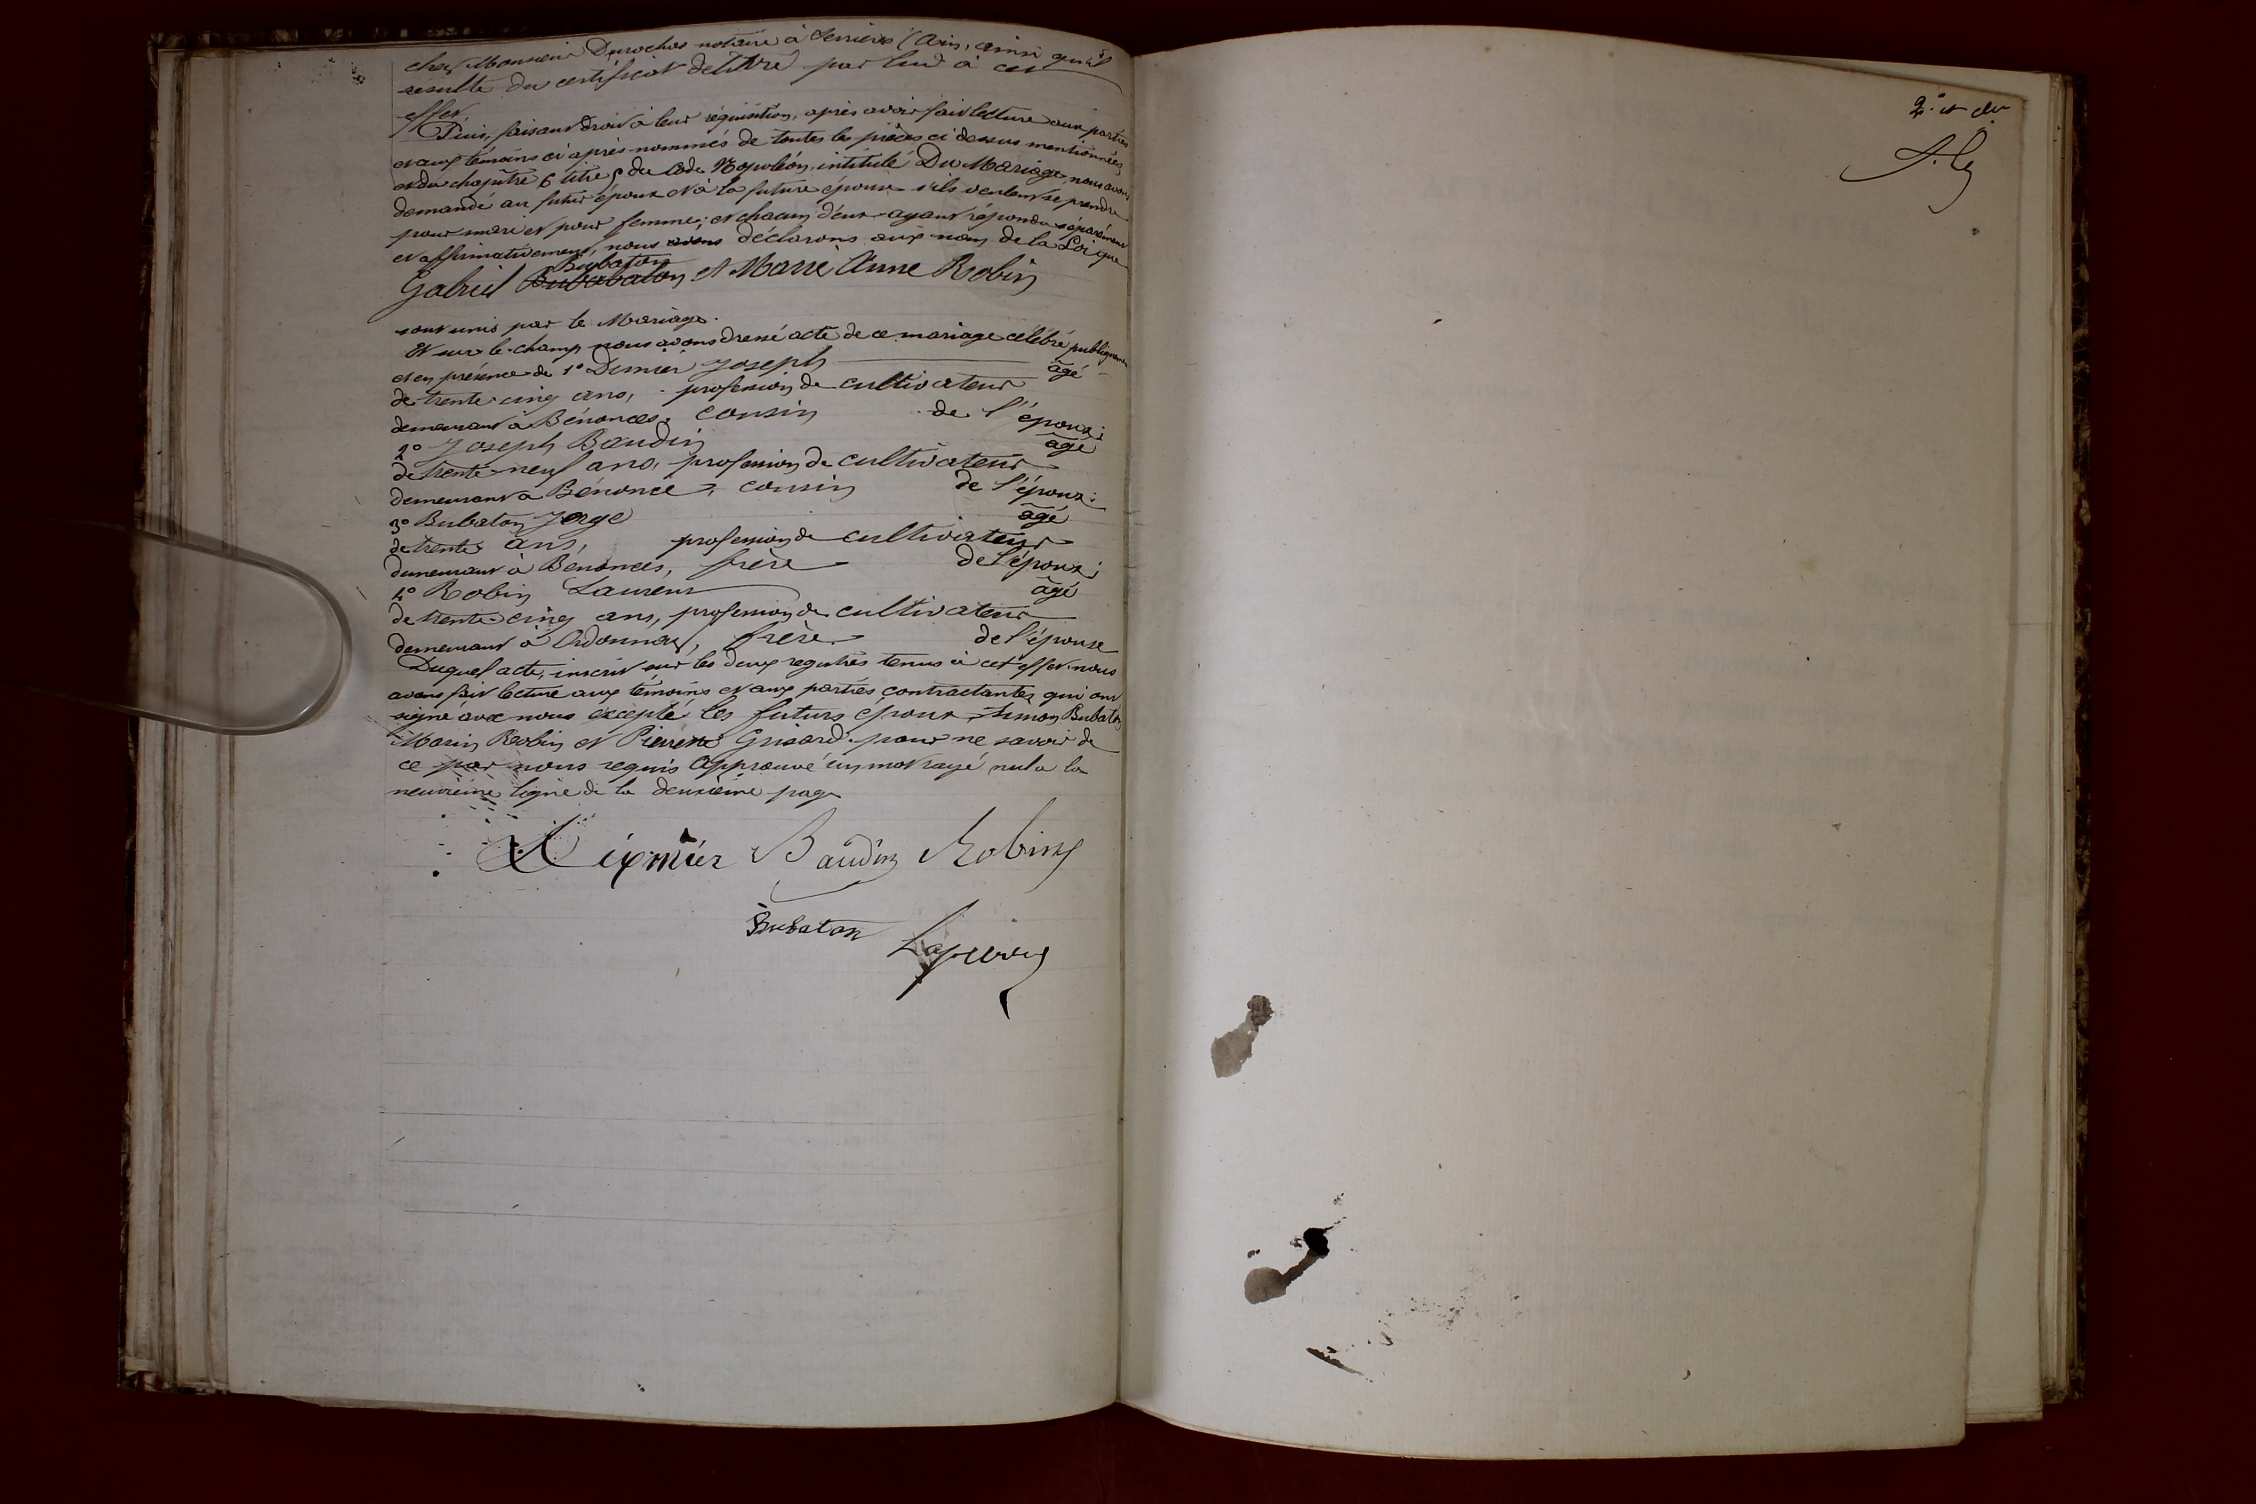 chez Monsieur Durochas notaire à Serrières (Ain, ainsi qu'il
resulte du certificat délivré par lui à cet
effet
Puis, faisant droit à leur réquisition, après avoir fait lecture aux parties
et aux témoins ci après nommés de toutes les pièces ci dessus mentionnées
et du chapitre 6 titre 5 du Code Napoléon, intitulé Du Mariage, nous avons
demandé au futur époux et à la future épouse s'ils veulent se prendre
pour mari et pour femme; et chacun d'eux ayant répondu séparément
et affirmativement, nous avons déclarons aux nom de la Loi que
Bubaton
Gabriel Bubabaton et Marie Anne Robin
sont unis par le Mariage.
Et sur le champ nous avons dressé acte de ce mariage célébré publiquement
et en présence de 1° Dimier Joseph âgé
de trente cinq ans, profession de cultivateur
demeurant à Bénonces, cousin de l'époux;
2° Joseph Baudin âgé
de trente neuf ans, profession de cultivateur
demeurant à Bénonce, cousin de l'époux;
3° Bubaton Jorge âgé
de trente ans, profession de cultivateur
demeurant à Benonces, frère de l'époux;
4° Robin Laurent âgé
de trente cinq ans, profession de cultivateur
demeurant à Ordonnaz, frère de l'épouse
Duquel acte, inscrit sur les deux registres tenus à cet effet nous
avons fait lecture aux témoins et aux parties contractantes qui ont
signé avec nous éxcepté les futurs époux Simon Bubaton
Marin Robin et Pierrette Grisard pour ne savoir de
ce par nous requis Approuvé un mot rayé nul a la
neuvième ligne de la deuxième page
Dixmier Baudin Robin
Bubaton
2e et der